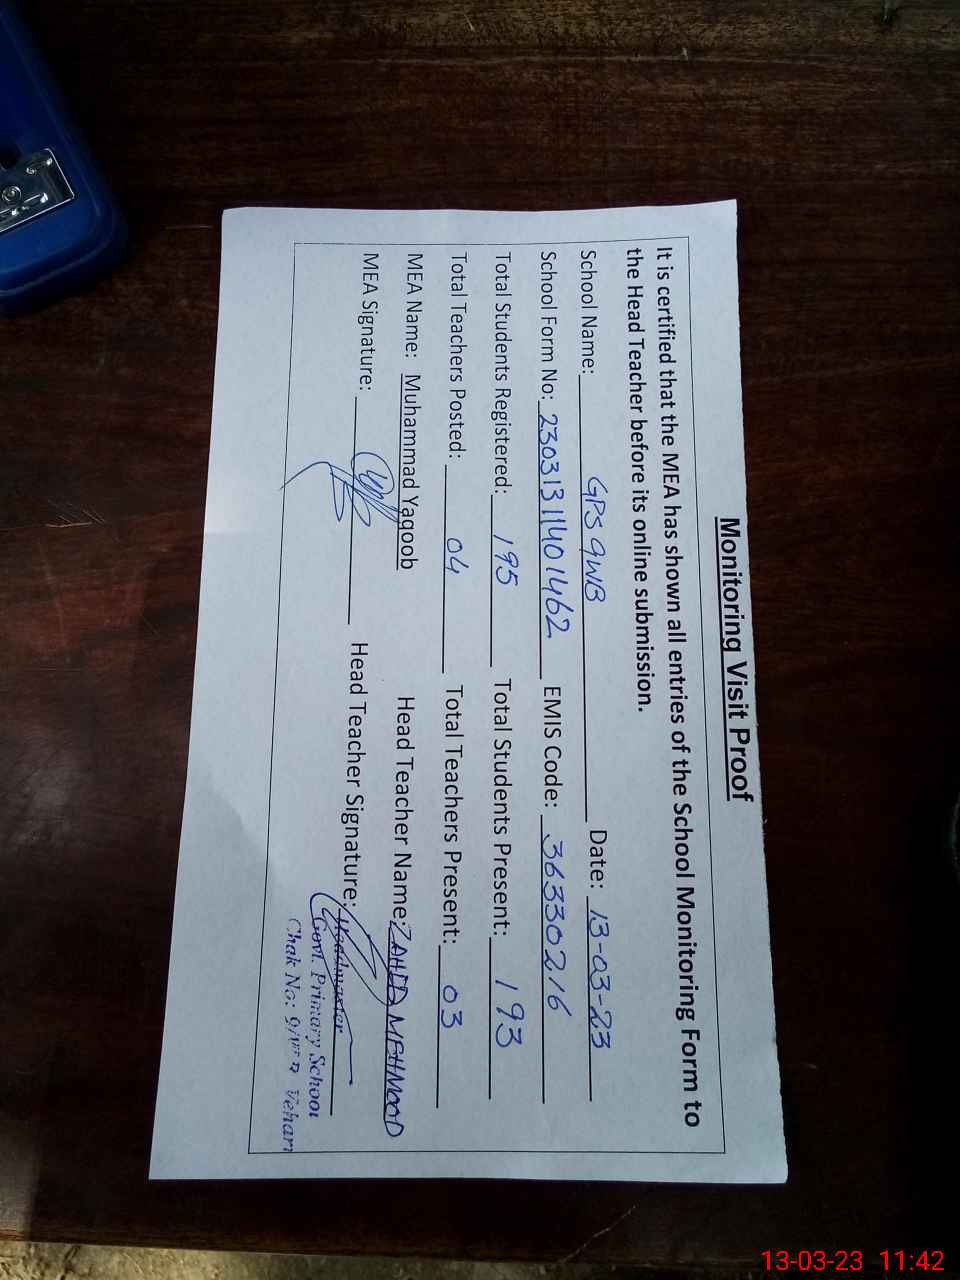 Monitoring Visit Proof
It is certified that the MEA has shown all entries of the School Monitoring Form to
the Head Teacher before its online submission.
School Name: GPS 9WB Date: 13-03-23
School Form No: 23031311401462 EMIS Code: 36330216
Total Students Registered: 195 Total Students Present: 193
Total Teachers Posted: 04 Total Teachers Present: 03
MEA Name: Muhammad Yaqoob Head Teacher Name: ZAHID MEHMOOD
MEA Signature: Head Teacher Signature:
Headmaster
Govt. Primary School
Chak No: Vehari
13-03-23 11:42